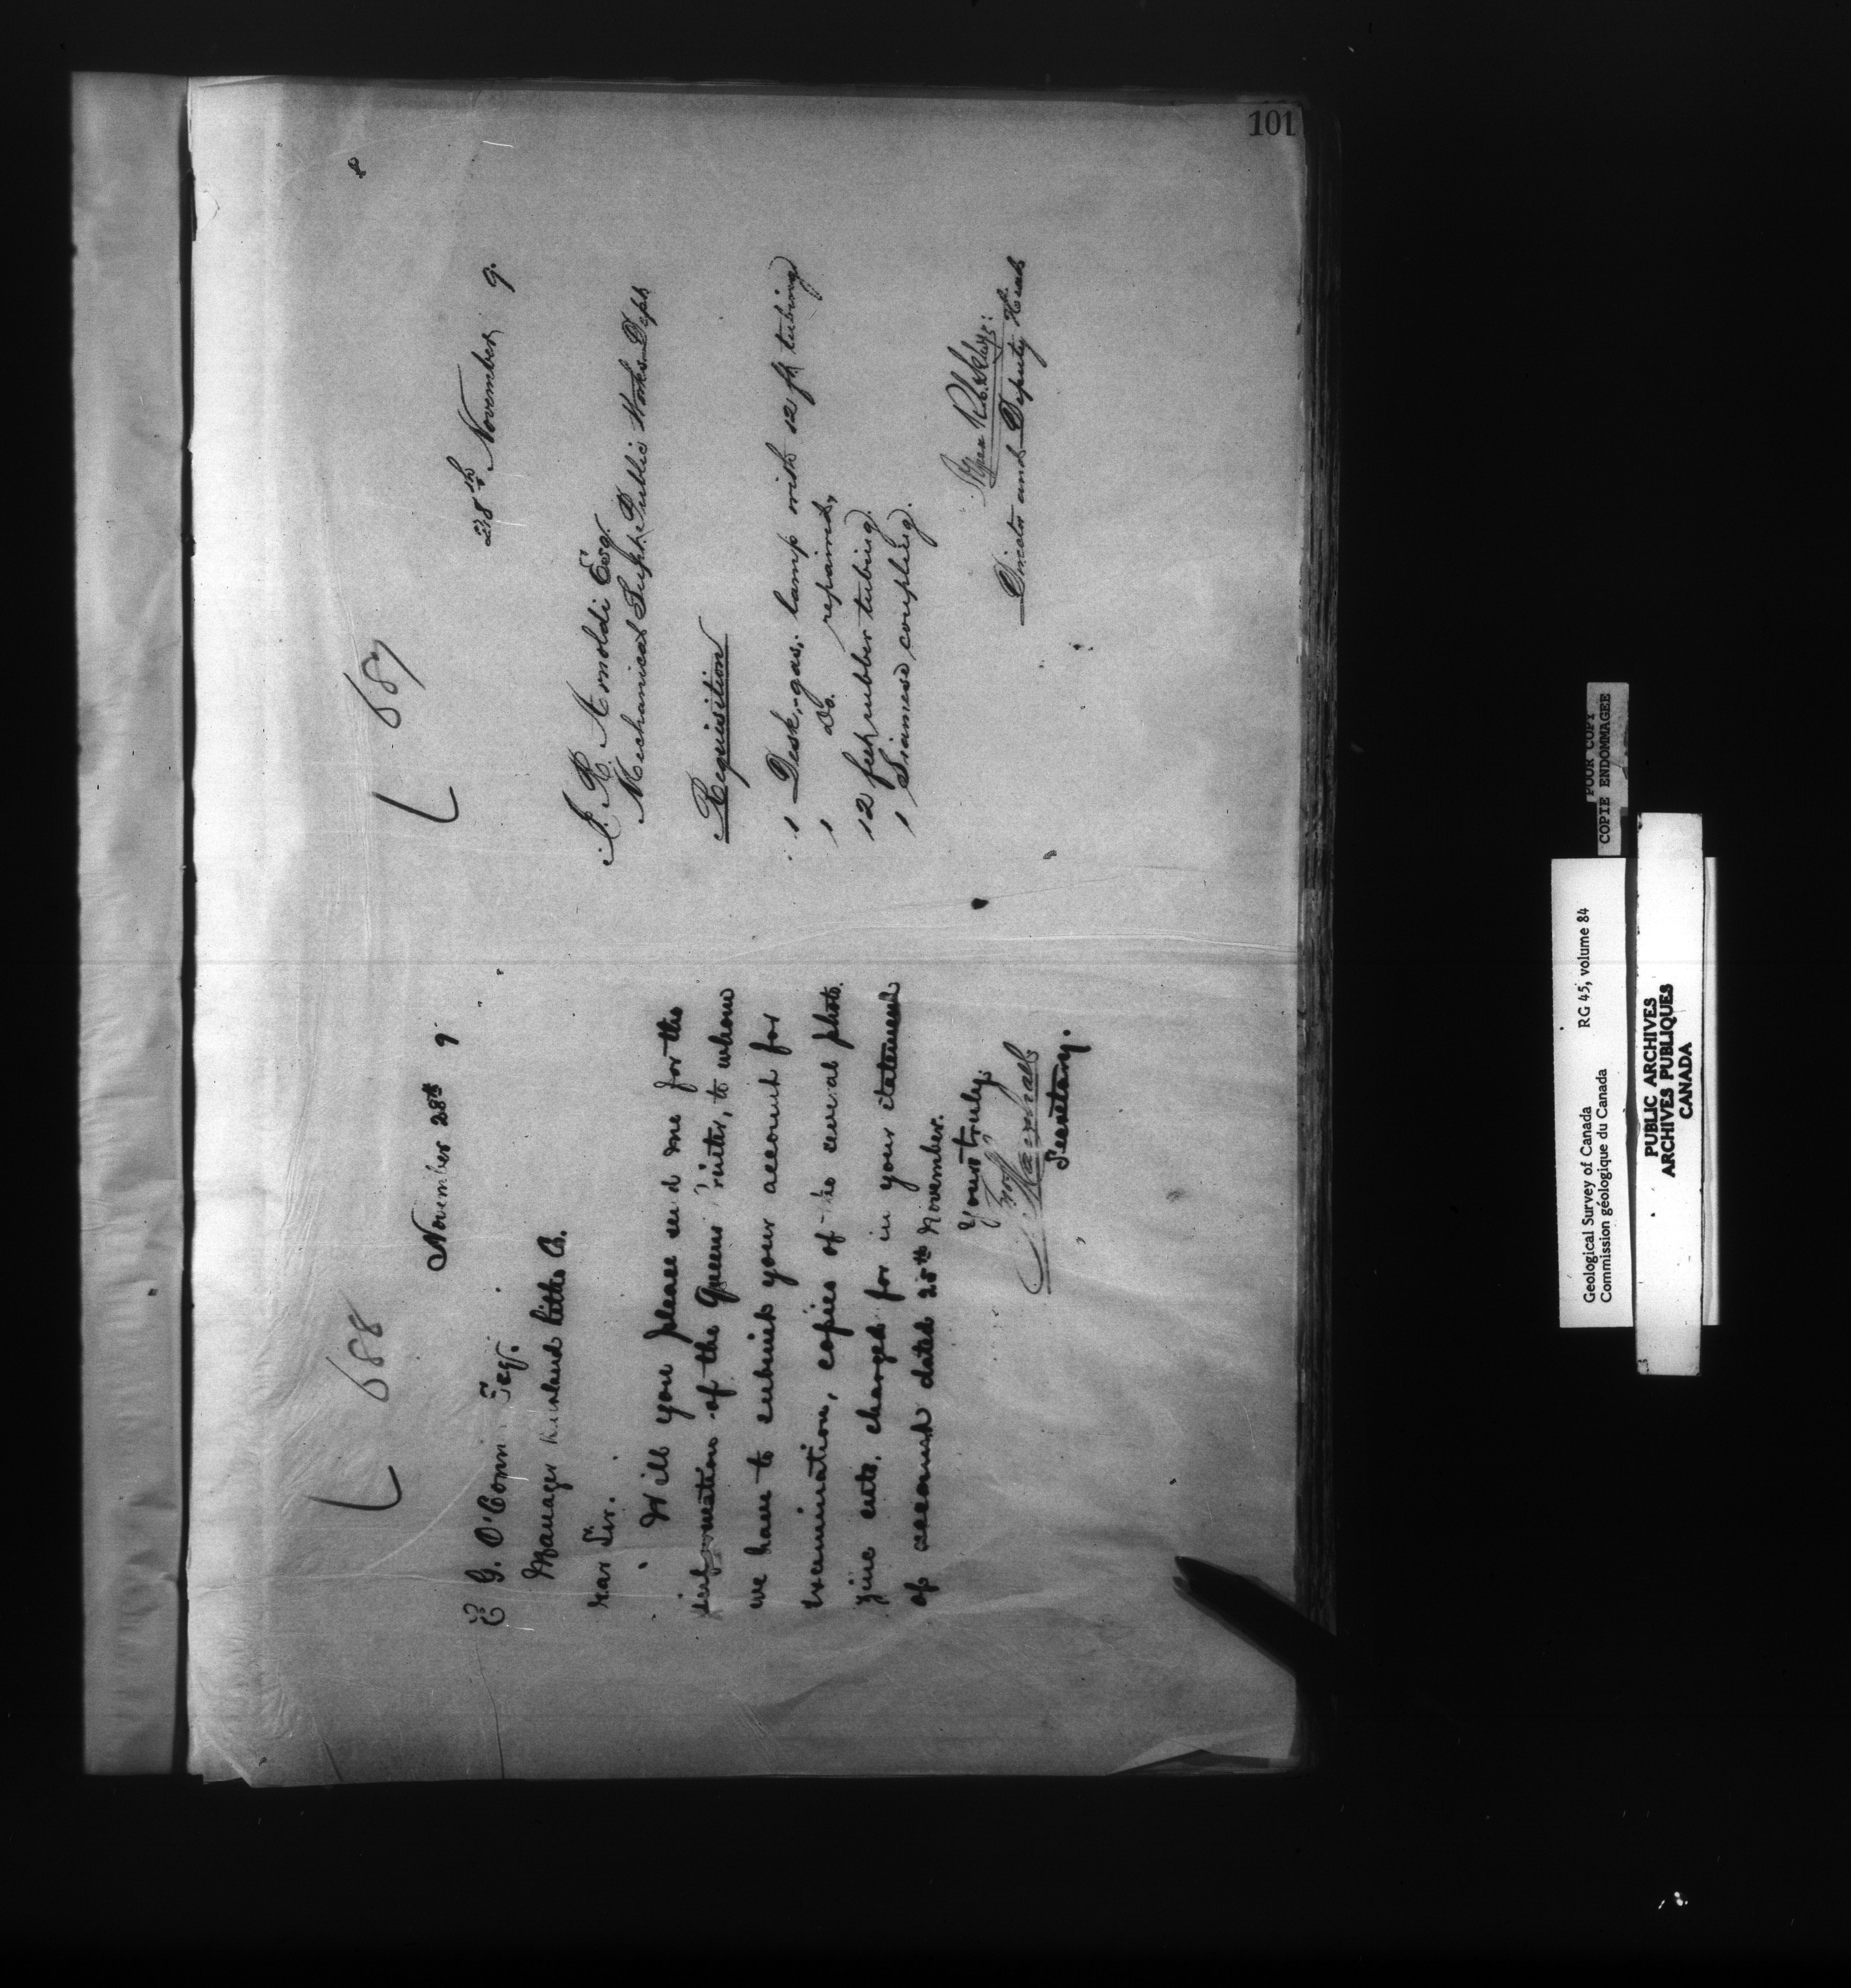 101
L 688
November 28th 9
E G. O'Conn Esq.
Manager Litho Co.
ear Sir.
Will you please send me for the
information of the Queens rinter, to whom
we have to submit your account for
examination, copies of several photo.
zinc cuts, charged for in your statement
of account dated 25th November.
Yours truly,
Jno Marshall
Secretary.
L 687
28th November 9.
J. R. Arnoldi Esq.
Mechanical Supt. Public Works Dept
Requisition
1 Desk, gas, lamp with 12 ft tubing
1 Do. repaired,
12 feet rubber tubing.
1 Siamese coupling.
Director and Deputy Head
POOR COPY
COPIE ENDOMMAGEE
Geological Survey of Canada RG 45, volume 84
Commission géologique du Canada
PUBLIC ARCHIVES
ARCHIVES PUBLIQUES
CANADA